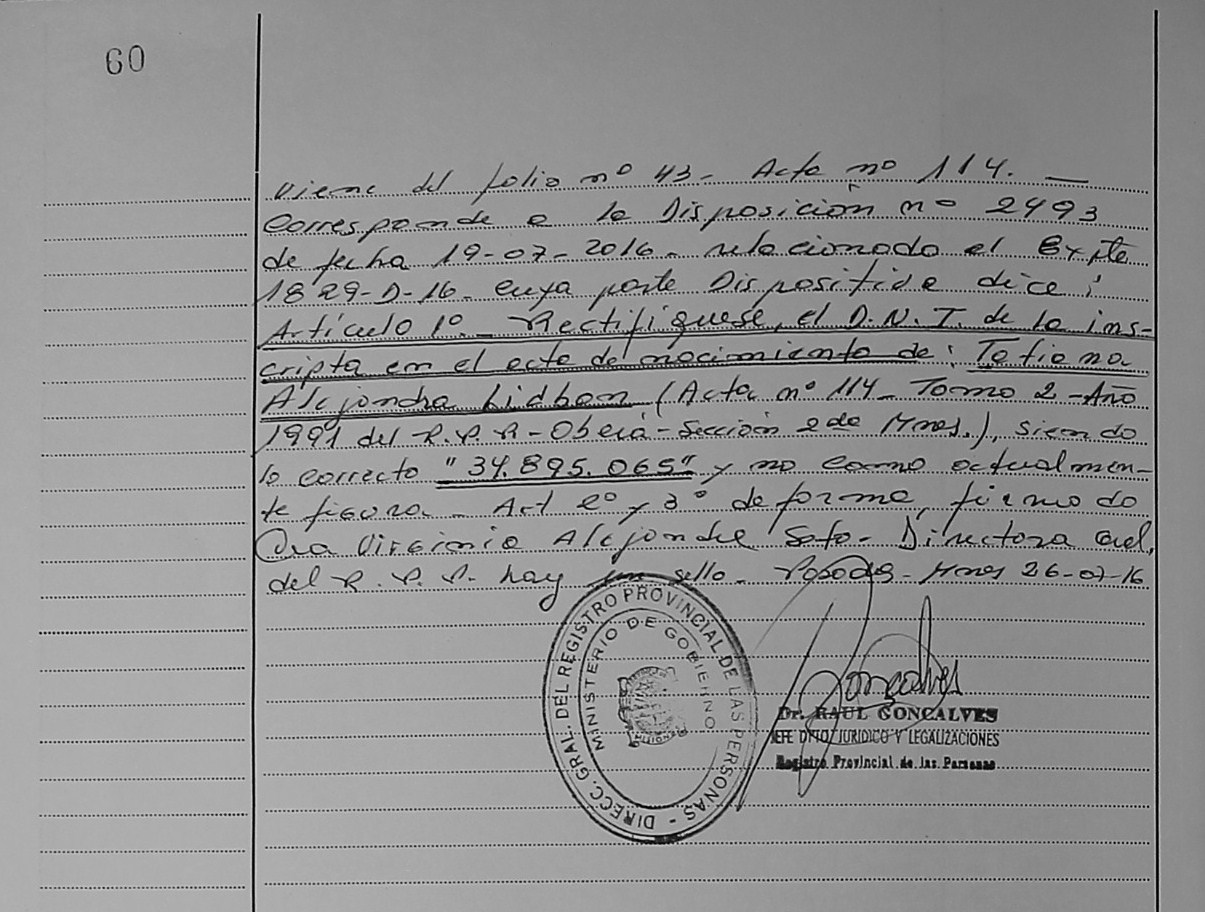 60
Viene del folio nº 43- Acta nº 114. —
Corresponde a la Disposición nº 2493
de fecha 19-07-2016- relacionado al Expte
1829-D-16- cuya parte Dispositiva dice:
Artículo 1º- Rectifíquese, el D.N.I. de la ins-
cripta en el acta de nacimiento de: Tatiana
Alejandra Lidban (Acta nº 114- Tomo 2-Año
1991 del R.P.P-Oberá-Sección 2da Mnes.), siendo
lo correcto "34.895.065" y no como actualmen-
te figura- Art 2º y 3º de forma, firmado
Dra Virginia Alejandra Soto- Directora Gral,
del R.P.P. hay un sello- Posadas- Mnes 26-07-16
DIRECC. GRAL. DEL REGISTRO PROVINCIAL DE LAS PERSONAS -
MINISTERIO DE GOBIERNO
Goncalves
Dr. RAUL GONCALVES
JEFE DPTO. JURIDICO Y LEGALIZACIONES
Registro Provincial de las Personas